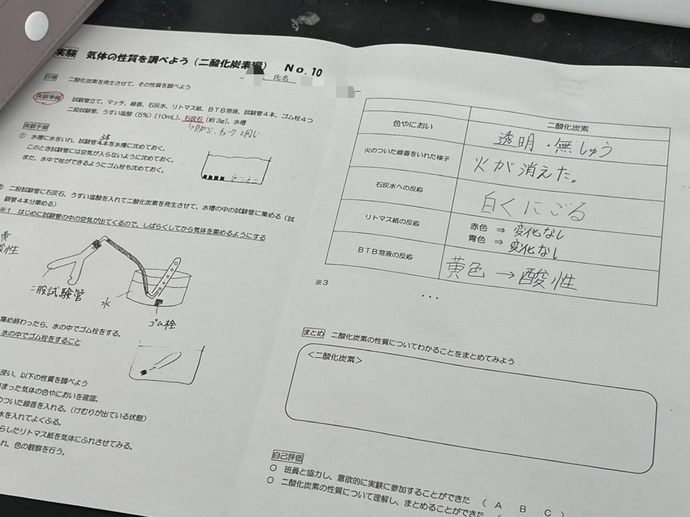 実験 気体の性質を調べよう（二酸化炭素編） No.10
目標 二酸化炭素を発生させて、その性質を調べよう
氏名
実験準備 試験管立て、マッチ、線香、石灰水、リトマス紙、BTB溶液、試験管4本、ゴム栓4つ
二股試験管、うすい塩酸（5％）[10mL]、石灰石[約3g]、水槽
実験手順
① 水槽に水をいれ、試験管 本を水槽に沈めておく。
このとき試験管には空気が入らないように沈めておく。
また、水中で栓ができるようにゴム栓も沈めておく。
二股試験管に石灰石、うすい塩酸を入れて二酸化炭素を発生させて、水槽の中の試験管に集める（試
験管4本分集める）
※1 はじめに試験管の中の空気が出てくるので、しばらくしてから気体を集めるようにする
二股試験管
水
ゴム栓
集め終わったら、水の中でゴム栓をする。
水の中でゴム栓をすること
使い、以下の性質を調べよう
まった気体の色やにおいを確認。
のついた線香を入れる。（けむりが出ている状態）
水を入れてよくふる。
らしたリトマス紙を気体にふれさせてみる。
れ、色の観察を行う。
二酸化炭素
色やにおい 透明・無しゅう
火のついた線香をいれた様子 火が消えた。
石灰水への反応 白くにごる
リトマス紙の反応 赤色 ⇒ 変化なし
青色 ⇒ 変化なし
BTB溶液の反応 黄色 → 酸性
※3
・・・
まとめ 二酸化炭素の性質についてわかることをまとめてみよう
＜二酸化炭素＞
自己評価
○ 班員と協力し、意欲的に実験に参加することができた （ A B C ）
○ 二酸化炭素の性質について理解し、まとめることができた （